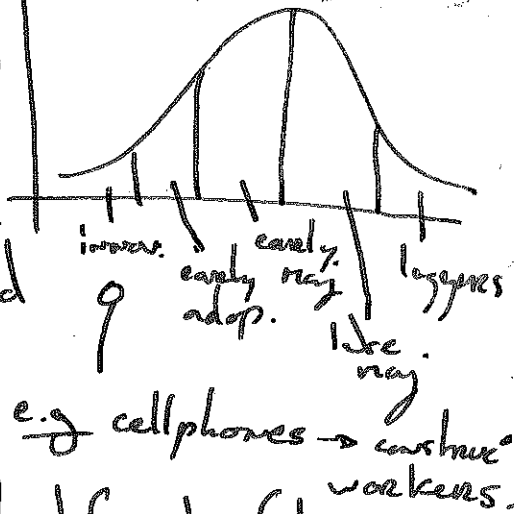 innov.
early adop.
early maj.
late maj.
laggers
e.g cellphones → construc-
workers.